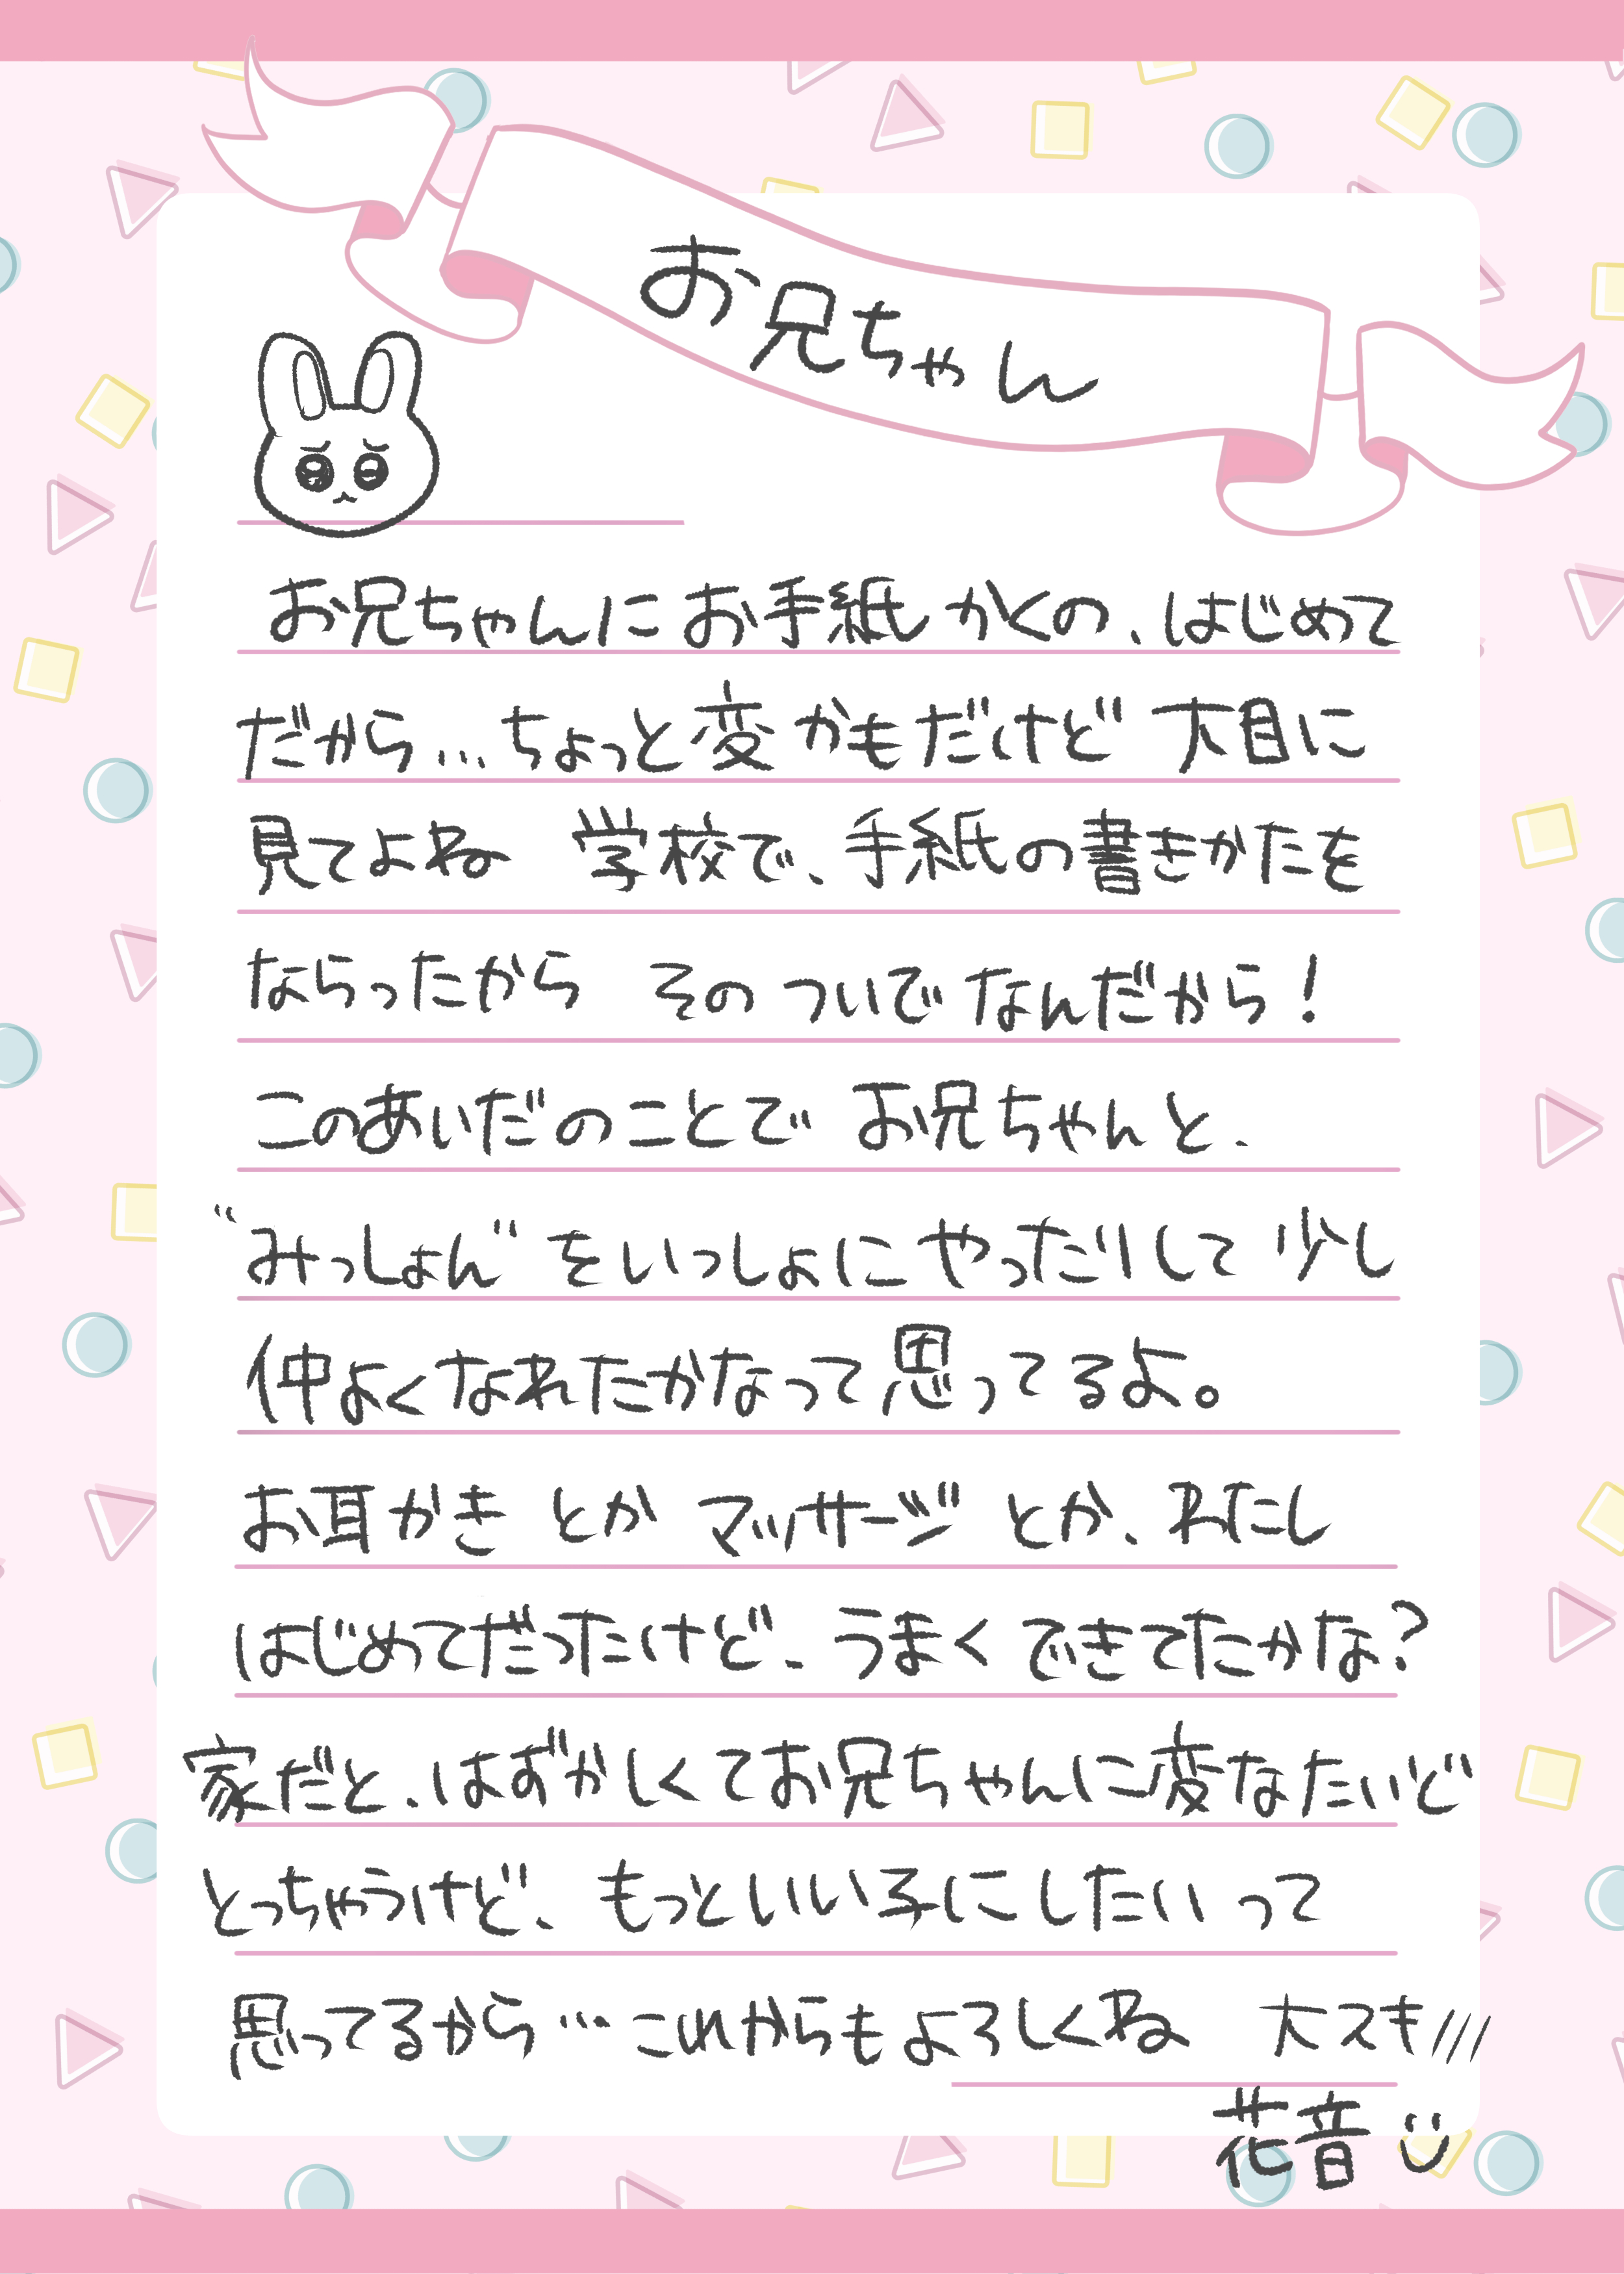 お兄ちゃん
お兄ちゃんにお手紙かくの、はじめて
だから…ちょっと変かもだけど 大目に
見てよね 学校で、手紙の書きかたを
ならったから そのついでなんだから!
このあいだのことで お兄ちゃんと、
“みっしょん”をいっしょにやったりして少し
仲よくなれたかなって思ってるよ。
お耳かきとかマッサージとか、わたし
はじめてだったけど、うまくできてたかな?
家だと、はずかしくてお兄ちゃんに変なたいど
とっちゃうけど、もっといい子にしたいって
思ってるから…これからもよろしくね 大スキ///
花音